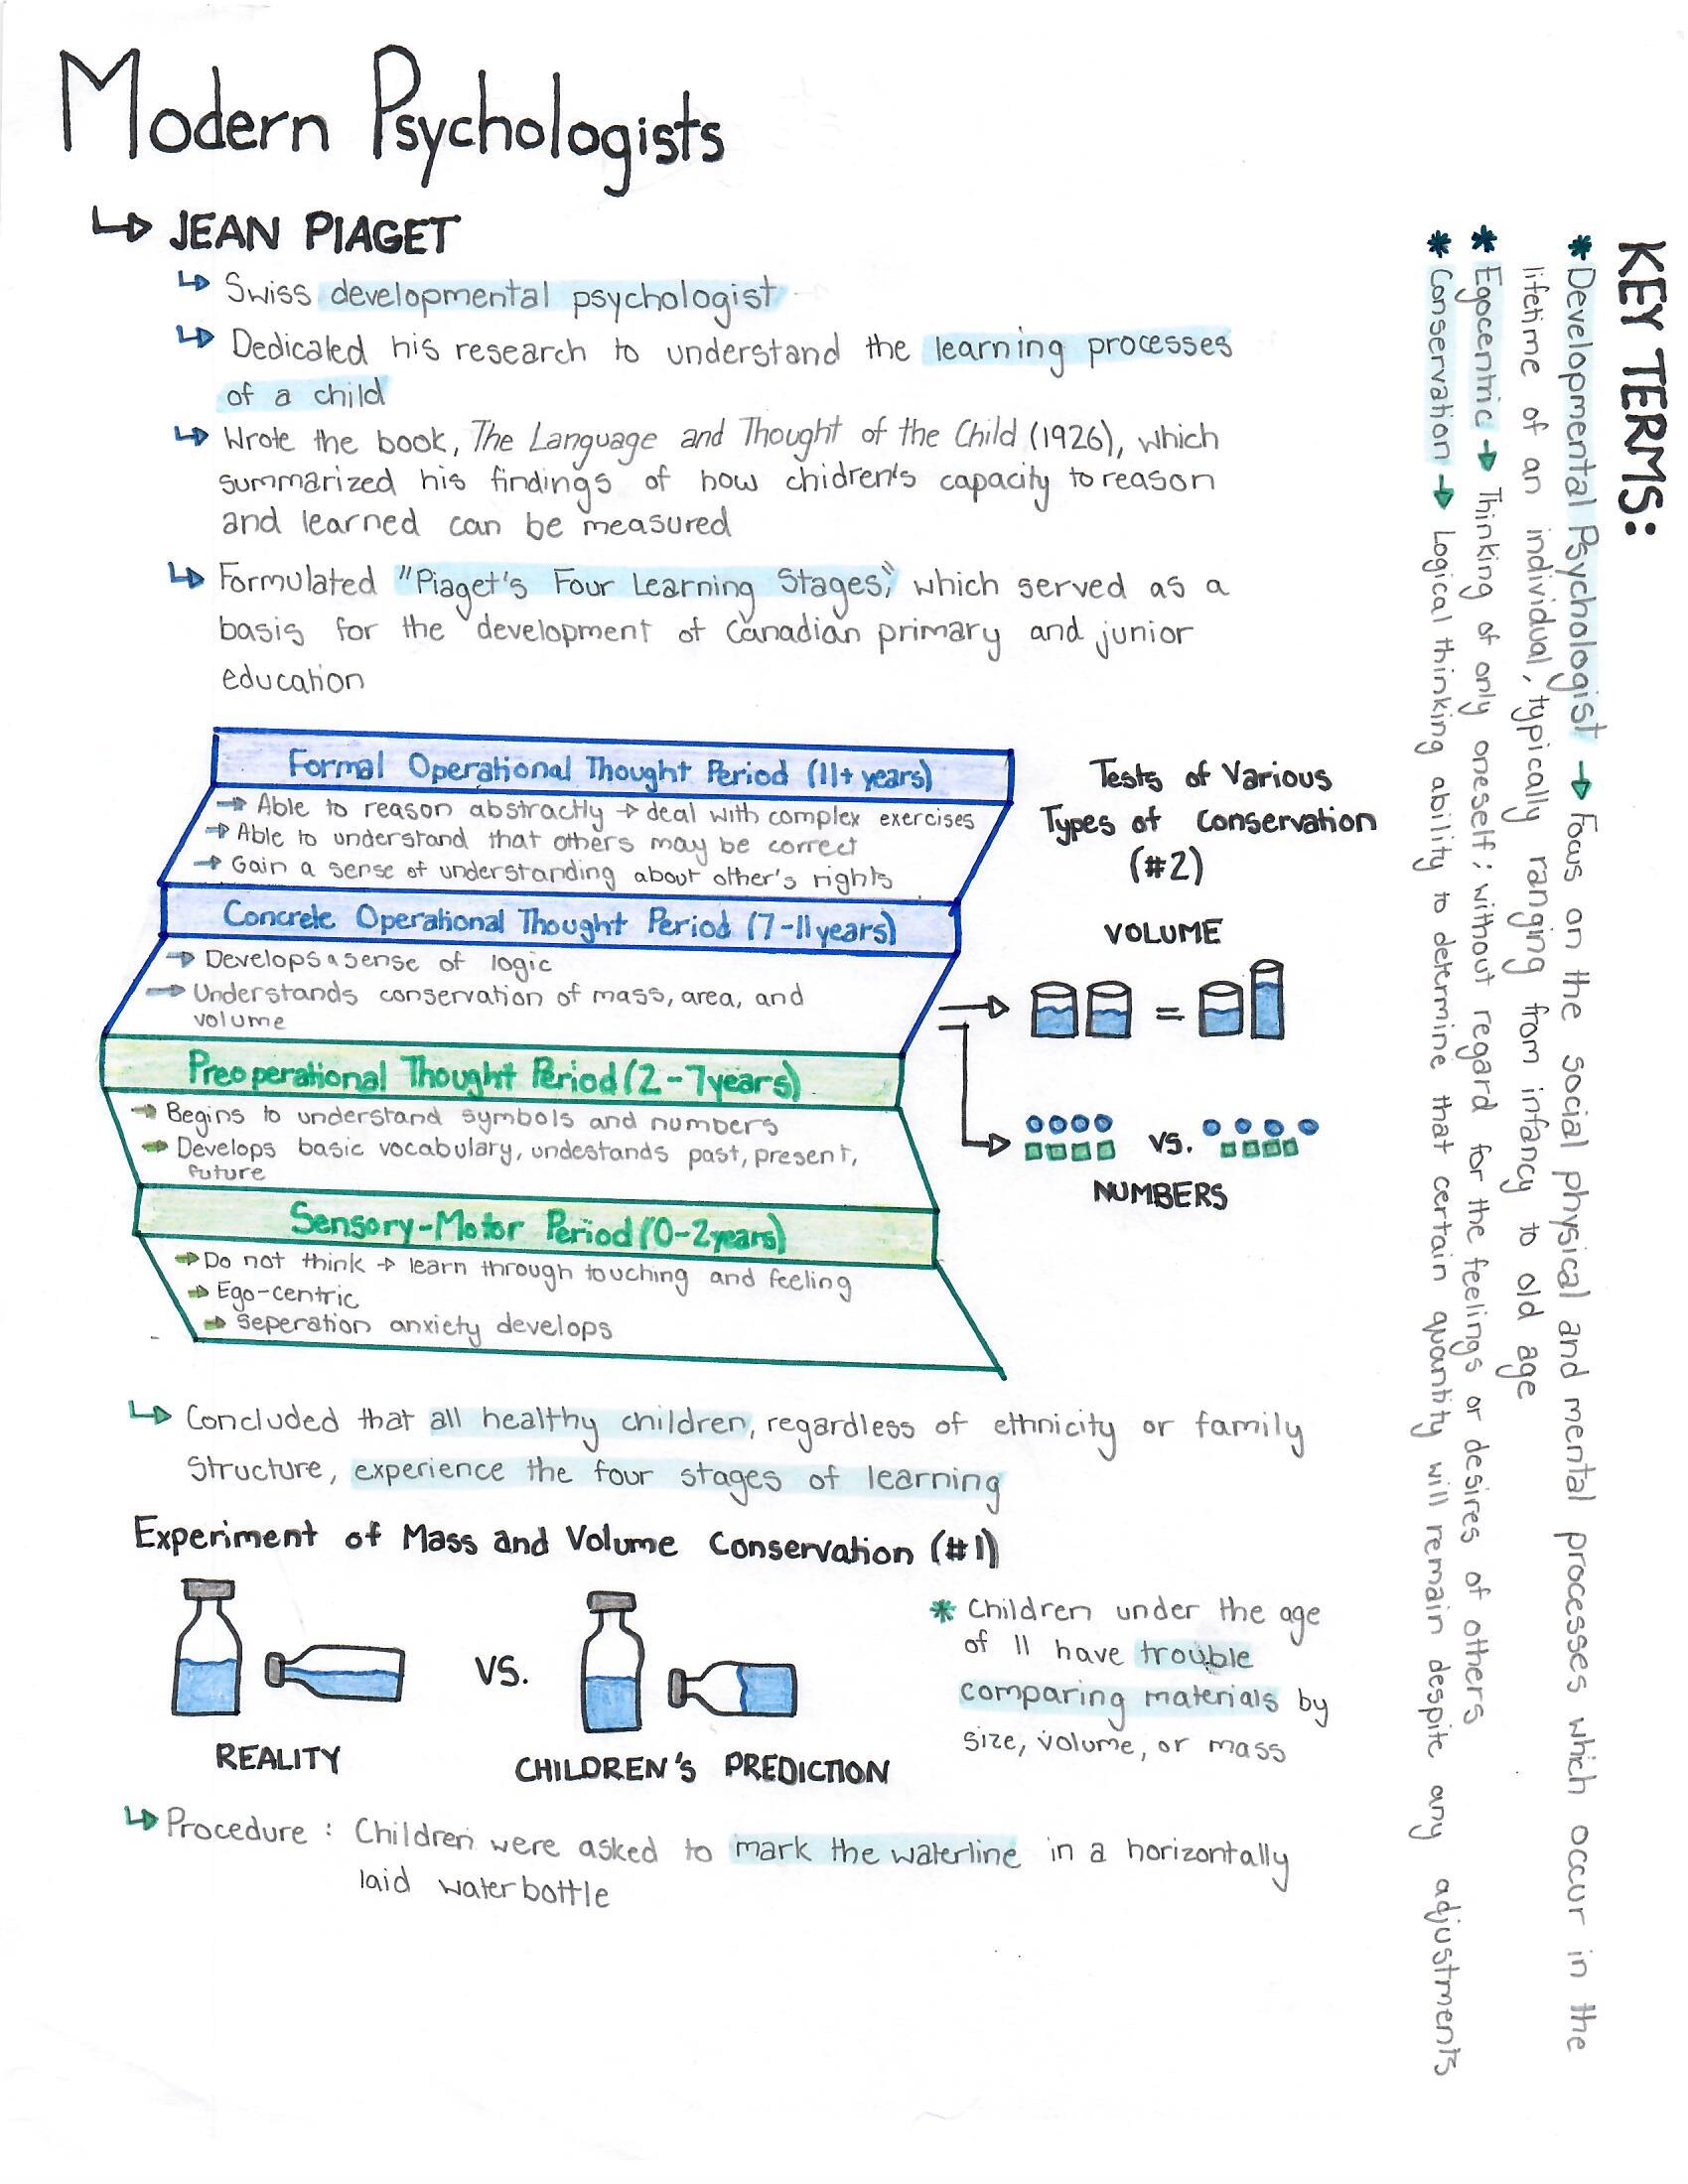 Modern Psychologists
↳ JEAN PIAGET
↳ Swiss developmental psychologist
↳ Dedicated his research to understand the learning processes
of a child
↳ Wrote the book, The Language and Thought of the Child (1926), which
summarized his findings of how chidren's capacity to reason
and learned can be measured
↳ Formulated "Piaget's Four Learning Stages," which served as a
basis for the development of Canadian primary and junior
education
Formal Operational Thought Period (11+ years)
→ Able to reason abstractly → deal with complex exercises
→ Able to understand that others may be correct
→ Gain a sense of understanding about other's rights
Concrete Operational Thought Period (7-11 years)
→ Develops a sense of logic
→ Understands conservation of mass, area, and
volume
Preoperational Thought Period (2-7 years)
→ Begins to understand symbols and numbers
→ Develops basic vocabulary, undestands past, present,
future
Sensory-Motor Period (0-2 years)
→ Do not think → learn through touching and feeling
→ Ego-centric
→ Seperation anxiety develops
Tests of Various
Types of Conservation
(#2)
VOLUME
=
vs.
NUMBERS
↳ Concluded that all healthy children, regardless of ethnicity or family
structure, experience the four stages of learning
Experiment of Mass and Volume Conservation (#1)
VS.
REALITY
CHILDREN'S PREDICTION
* Children under the age
of 11 have trouble
comparing materials by
size, volume, or mass
↳ Procedure: Children were asked to mark the waterline in a horizontally
laid water bottle
KEY TERMS:
* Developmental Psychologist → Focus on the social physical and mental processes which occur in the
lifetime of an individual, typically ranging from infancy to old age
* Egocentric → Thinking of only oneself; without regard for the feelings or desires of others
* Conservation → Logical thinking ability to determine that certain quantity will remain despite any adjustments